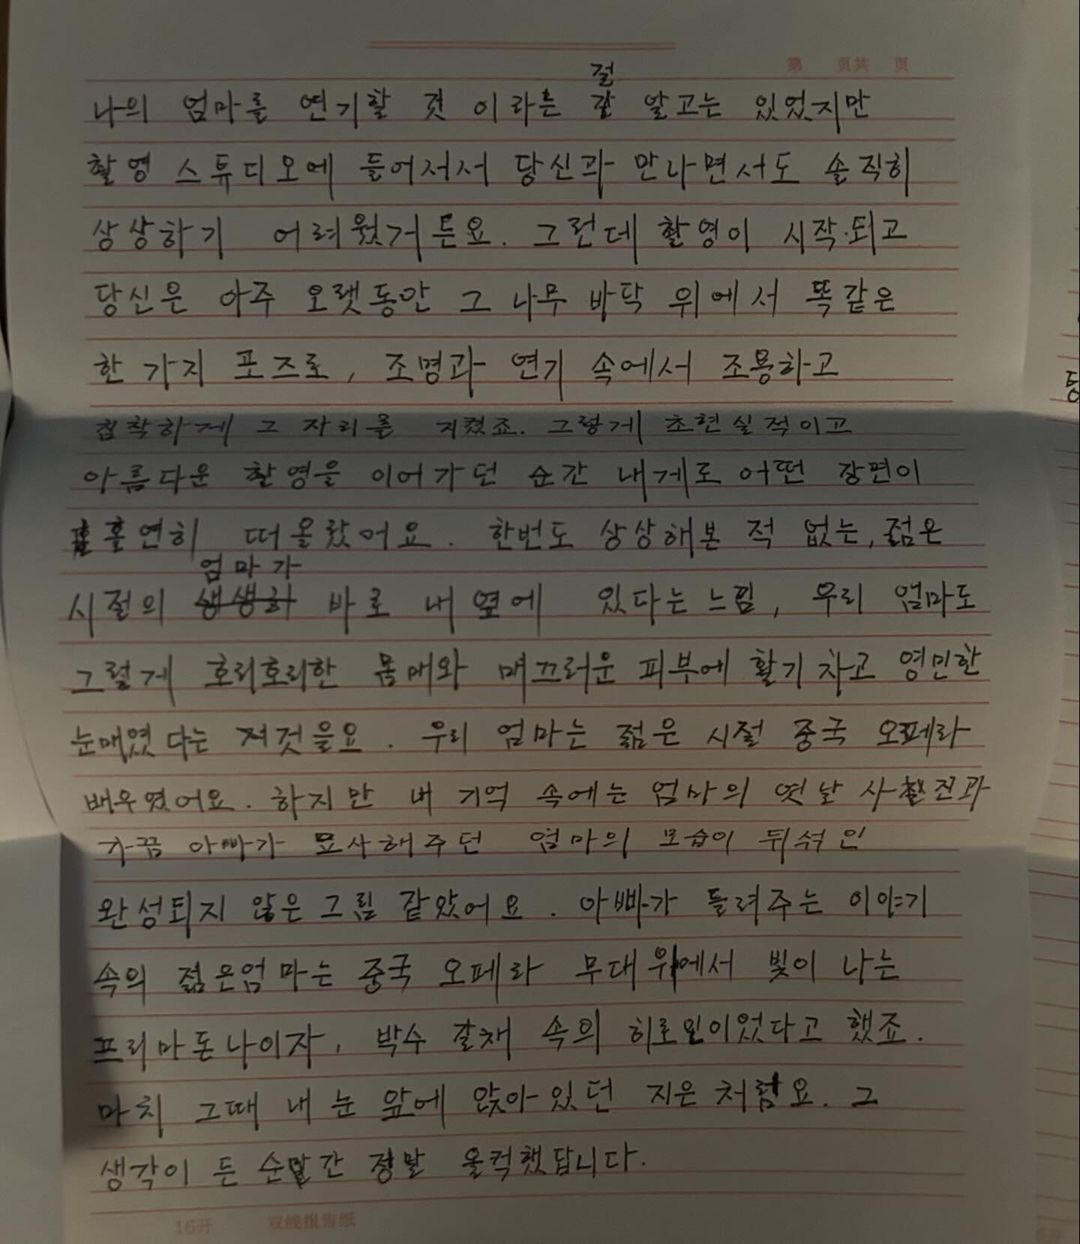 第 页共 页
절
나의 엄마를 연기할 것 이라흔 잘 알고는 있었지만
촬영 스튜디오에 들어저서 당신과 만나면서도 솔직히
상상하기 어려웠거든요. 그런데 촬영이 시작·되고
당신은 아주 오랫동안 그 나무 바닥 위에서 똑같은
한 가지 포즈로, 조명과 연기 속에서 조용하고
침착하게 그 자리를 지켰죠. 그렇게 초현실적이고
아름다운 촬영을 이어가던 순간 내게로 어떤 장면이
홀연히 떠올랐어요. 한번도 상상해본 적 없는, 젊은
엄마가
시절의 생생히 바로 내 옆에 있다는 느낌, 우리 엄마도
그렇게 호리호리한 몸매와 매끄러운 피부에 활기 차고 영민한
눈매였다는 져것을요. 우리 엄마는 젊은 시절 중국 오페라
배우였어요. 하지만 내 기억 속에는 엄마의 옛날 사진과
가끔 아빠가 묘사해주던 엄마의 모습이 뒤섞인
완성되지 않은 그림 같았어요. 아빠가 들려주는 이야기
속의 젊은엄마는 중국 오페라 무대위에서 빛이 나는
프리마돈나이자, 박수 갈채 속의 히로인이었다고 했죠.
마치 그때 내 눈 앞에 앉아있던 지은 처럼요. 그
생각이 든 순간 정말 울컥했답니다.
16开 双线报告纸